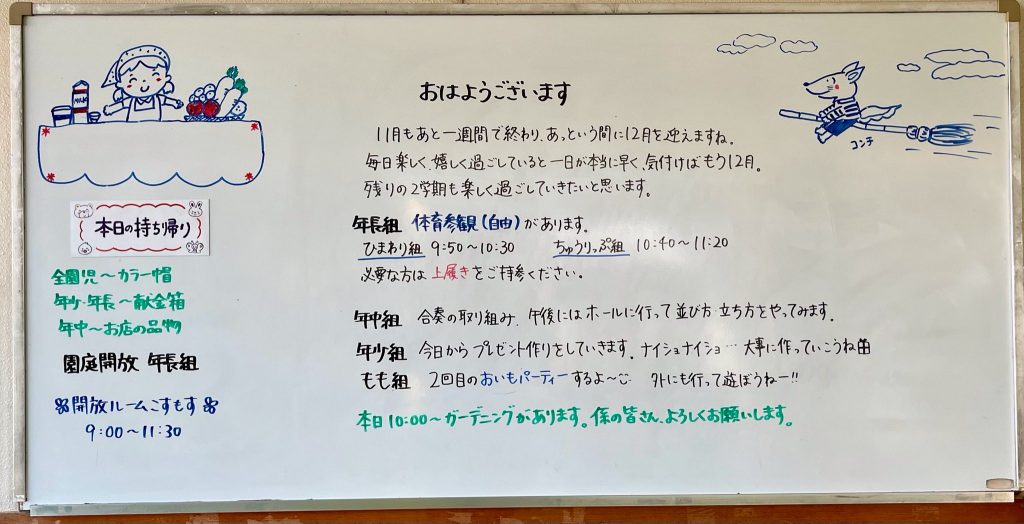 おはようございます
11月もあと一週間で終わり、あっという間に12月を迎えますね。
毎日楽しく、嬉しく過ごしていると一日が本当に早く、気付けばもう12月。
残りの2学期も楽しく過ごしていきたいと思います。
年長組 体育参観(自由)があります。
ひまわり組 9:50〜10:30 ちゅうりっぷ組 10:40〜11:20
必要な方は上履きをご持参ください。
年中組 合奏の取り組み、午後にはホールに行って並び方・立ち方をやってみます。
年少組 今日からプレゼント作りをしていきます。ナイショナイショ… 大事に作っていこうね
もも組 2回目のおいもパーティーするよ〜 外にも行って遊ぼうねー!!
本日10:00〜ガーデニングがあります。係の皆さん、よろしくお願いします。
MILK
本日の持ち帰り
全園児〜カラー帽
年少・年長〜献金箱
年中〜お店の品物
園庭開放 年長組
開放ルームこすもす
9:00〜11:30
コンチ